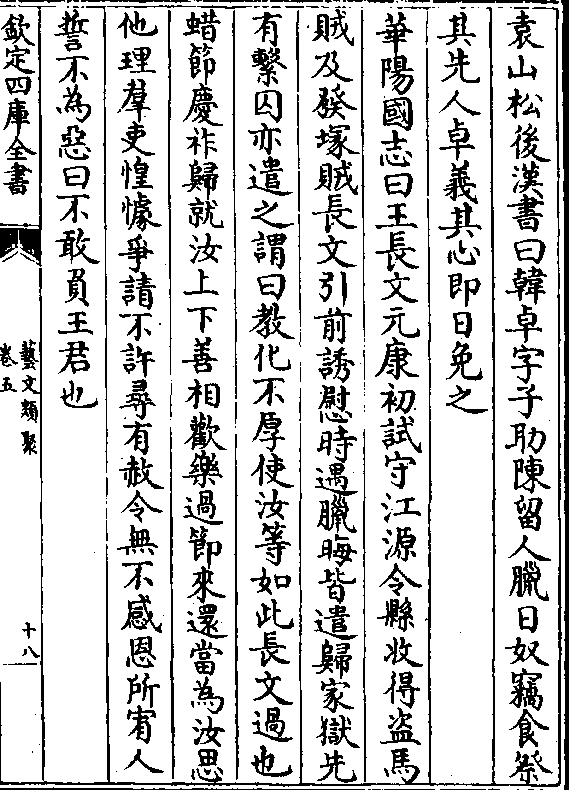 袁山松後漢書曰韓卓字子助陳留人臘日奴竊食祭
其先人卓義其心即日免之
華陽國志曰王長文元康初試守江源令縣收得盜馬
賊及發塚賊長文引前誘慰時遇臘晦皆遣歸家獄先
有繫囚亦遣之謂曰教化不厚使汝等如此長文過也
蜡節慶祚歸就汝上下善相歡樂過節來還當為汝思
他理羣吏惶懅爭請不許尋有赦令無不感恩所宥人
誓不為惡曰不敢負王君也
欽定四庫全書
藝文類聚
卷五
十八